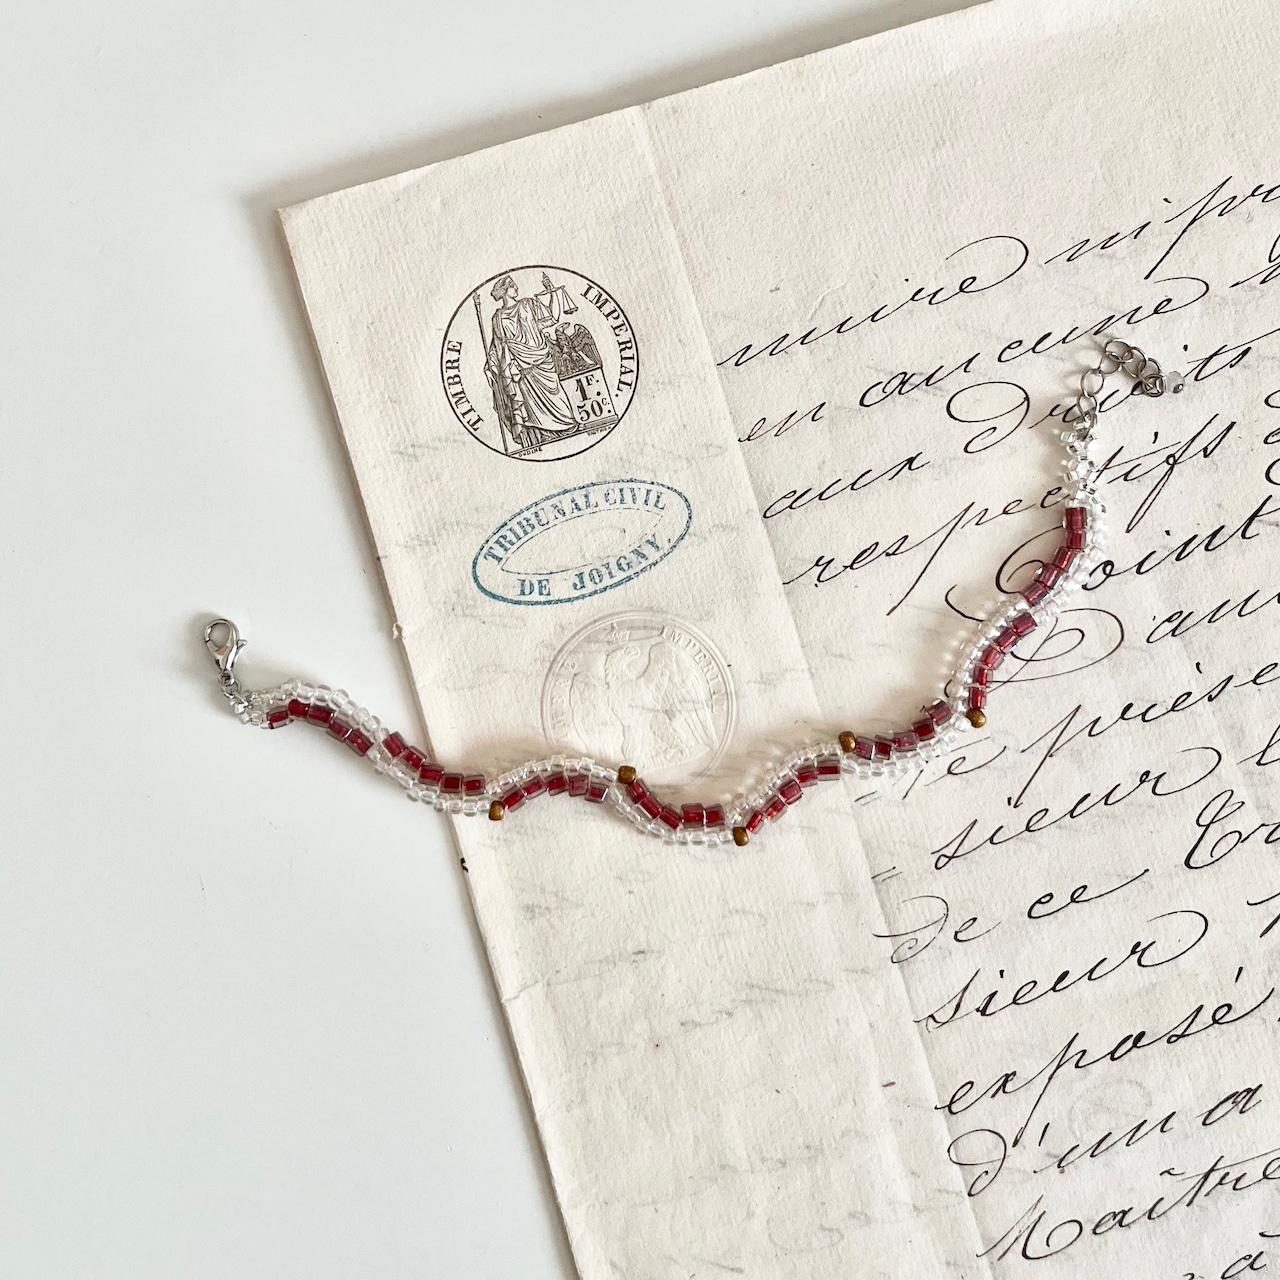 TIMBRE IMPERIAL.
1F.
50c.
OUDINÉ
TRIBUNAL CIVIL
DE JOIGNY.
IMPERIAL
en aucune
aux Droits
respectifs
Point
te présen
sieur
de ce
sieur
exposé
d'un a
Maître
à